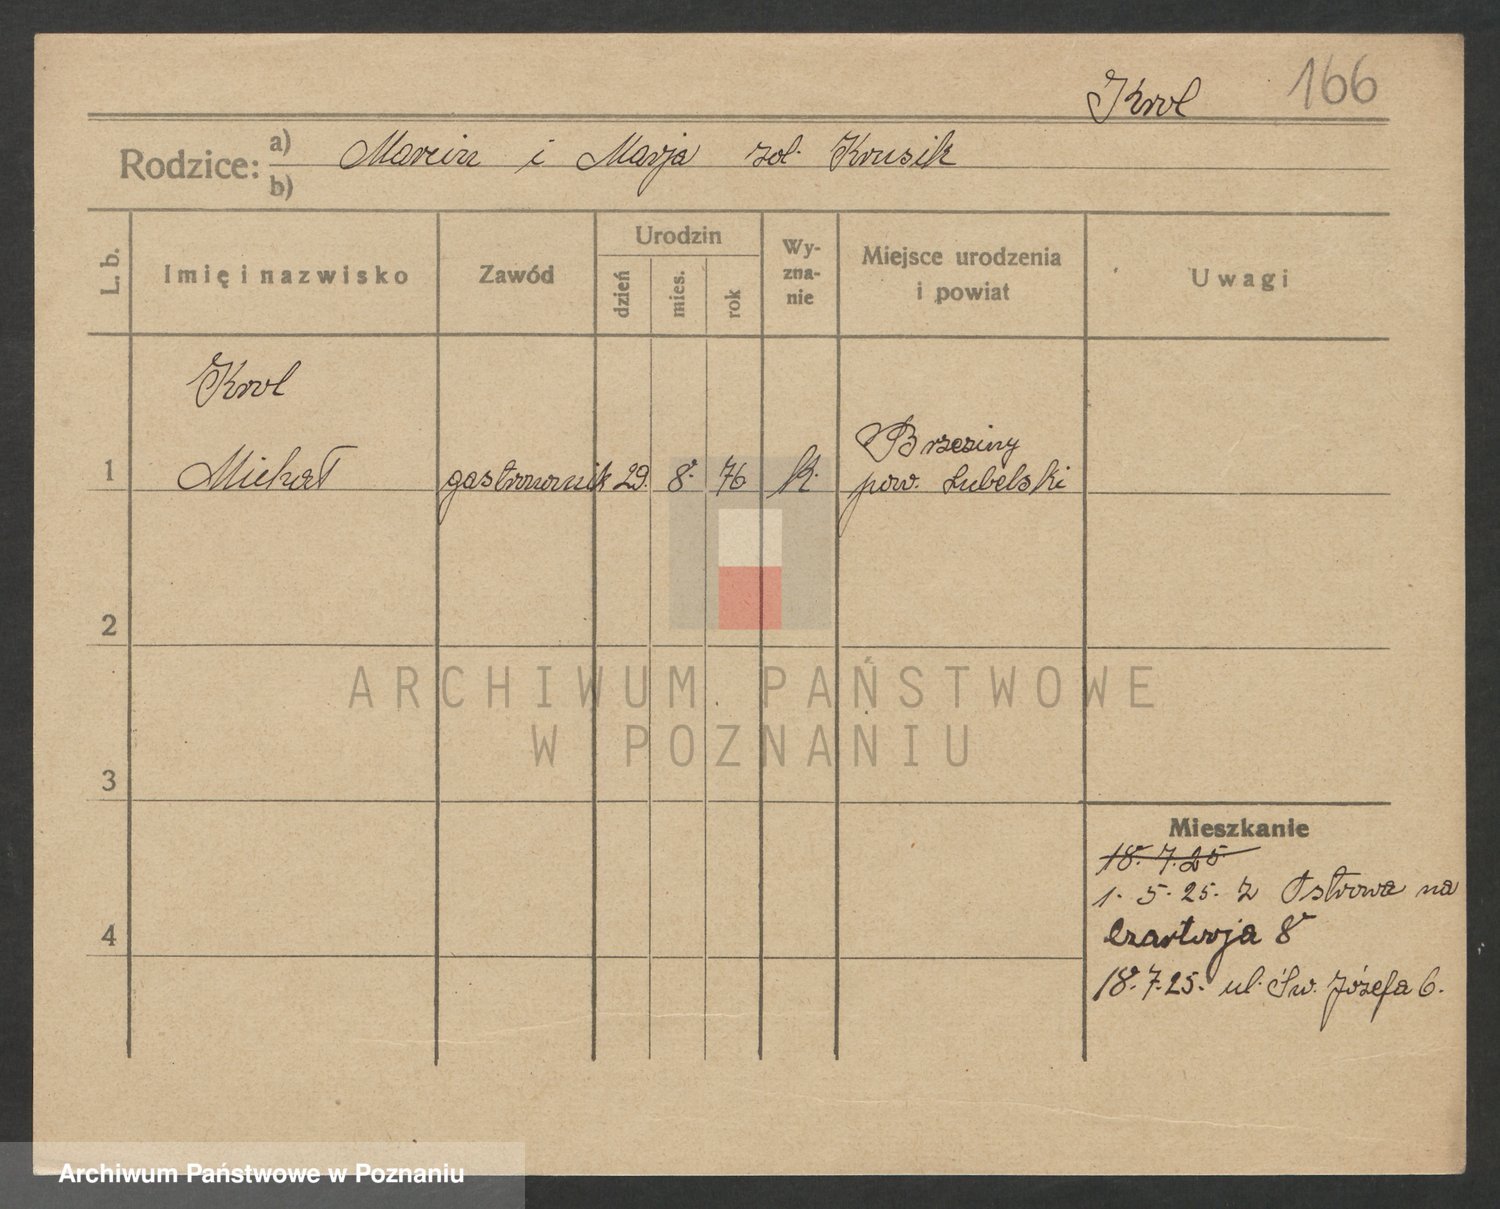 Krol 166
Rodzice: a) Marcin i Marja
b)
L. b.
Imię i nazwisko
Zawód
Urodzin
dzień
mies.
rok
Wy-
zna-
nie
Miejsce urodzenia
i powiat
Uwagi
Krol
1 Michał gastronomik 29. 8. 76 k. Brzeziny
pow. Lubelski
2
3
4
ARCHIWUM PAŃSTWOWE
W POZNANIU
Mieszkanie
18. 7. 25
1. 5. 25. z Ostrowa na
8
18. 7. 25. ul. Św. Józefa 6.
Archiwum Państwowe w Poznaniu